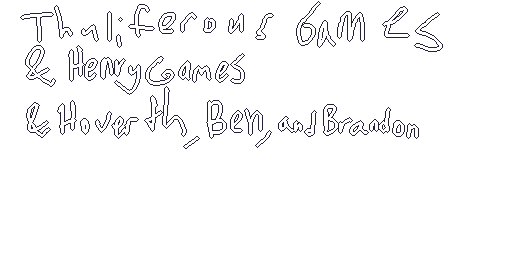 Thuliferous GamES
& HenryGames
& Hoverth, Ben, and Brandon